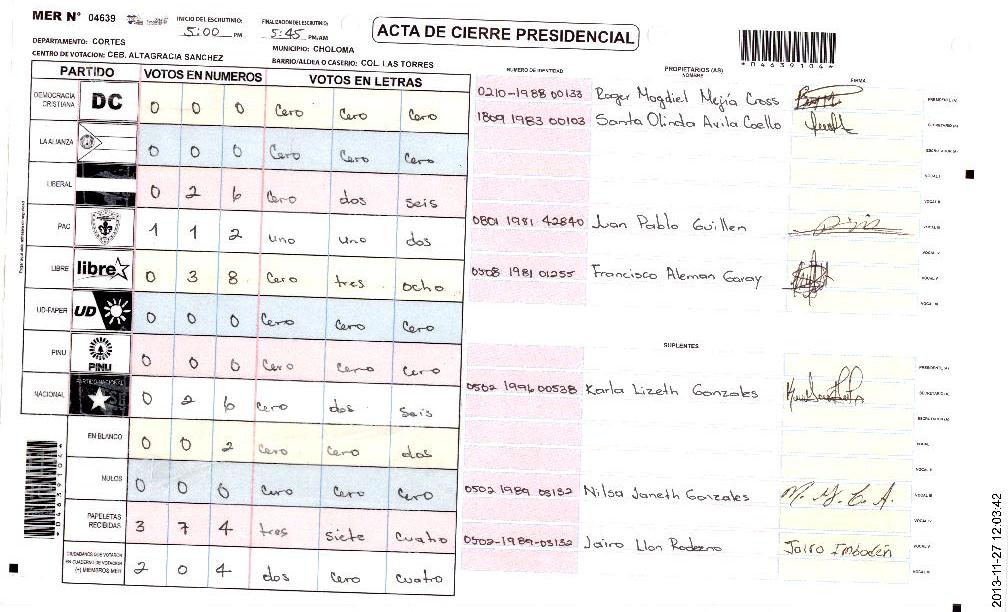 MER N° 04639
INICIO DEL ESCRUTINIO: 5:00 PM
FINALIZACION DEL ESCRUTINIO: 5:45 PM/AM
ACTA DE CIERRE PRESIDENCIAL
*04639104*
DEPARTAMENTO: CORTES
MUNICIPIO: CHOLOMA
CENTRO DE VOTACION: CEB. ALTAGRACIA SANCHEZ
BARRIO/ALDEA O CASERIO: COL. LAS TORRES
PARTIDO VOTOS EN NUMEROS VOTOS EN LETRAS
DEMOCRACIA CRISTIANA DC 0 0 0 Cero Cero Cero
LA ALIANZA 0 0 0 Cero Cero Cero
LIBERAL 0 2 6 Cero dos seis
PAC 1 1 2 uno uno dos
LIBRE libre 0 3 8 Cero tres ocho
UD-FAPER UD 0 0 0 Cero Cero Cero
PINU PINU 0 0 0 Cero Cero Cero
NACIONAL PARTIDO NACIONAL 0 2 6 Cero dos seis
EN BLANCO 0 0 2 Cero Cero dos
NULOS 0 0 0 Cero Cero Cero
PAPELETAS RECIBIDAS 3 7 4 tres siete cuatro
CIUDADANOS QUE VOTARON EN CUADERNO DE VOTACION (+) MIEMBROS MER 2 0 4 dos cero cuatro
NUMERO DE IDENTIDAD PROPIETARIOS (AS) NOMBRE FIRMA
0210-1988 00133 Roger Mogdiel Mejía Cross PRESIDENTE (A)
1809 1983 00103 Santa Olinda Avila Coello SECRETARIO (A)
ESCRUTADOR (A)
VOCAL I
VOCAL II
0801 1981 42840 Juan Pablo Guillen VOCAL III
VOCAL IV
0508 1981 01255 Francisco Aleman Garay VOCAL V
VOCAL VI
SUPLENTES
PRESIDENTE (A)
0502 1996 00538 Karla Lizeth Gonzales SECRETARIO (A)
ESCRUTADOR (A)
VOCAL I
VOCAL II
0502 1989 03132 Nilsa Janeth Gonzales VOCAL III
VOCAL IV
0502-1989-03132 Jairo Jairo Imboden VOCAL V
VOCAL VI
*04639104*
2013-11-27 12:03:42